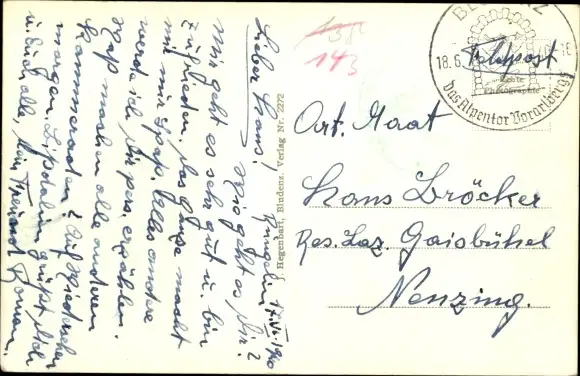 Tüngelin, 17.VI.1940
Lieber Hans!
Wie geht es Dir?
Mir geht es sehr gut u. bin
zufrieden, das ganze macht
mir Spaß. Alles andere
werde ich Dir pers. erzählen.
Was machen alle anderen
Kammeraden? Auf Wiedersehen
morgen. Lipdalin grüßt Dich
u. Euch alle, Dein Freund Roman.
J. Hegenbart, Bludenz. Verlag Nr. 2272
138
143
BLUDENZ
18.6.
Feldpost
Echte
Photographie
Das Alpentor Vorarlbergs
Art. Maat
Hans Bröcker
Res. Laz. Gaisbühel
Nenzing.